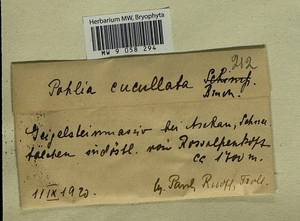 Herbarium MW, Bryophyta
MW 9 058 294
212
Pohlia cucullata Schimp.
Bruch.
Geigelsteinmassiv bei Aschau, Schnee
tälchen südöstl. vom Rossalpenkopf
cc 1700 m.
11/IX 1920. lg. Paul,